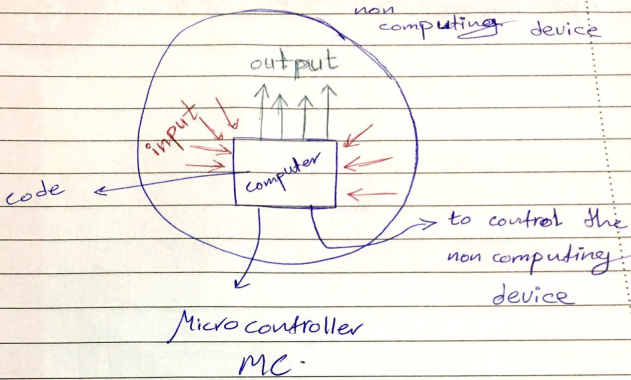 non
computing device
output
input
computer
code
to control the
non computing
device
Microcontroller
MC.